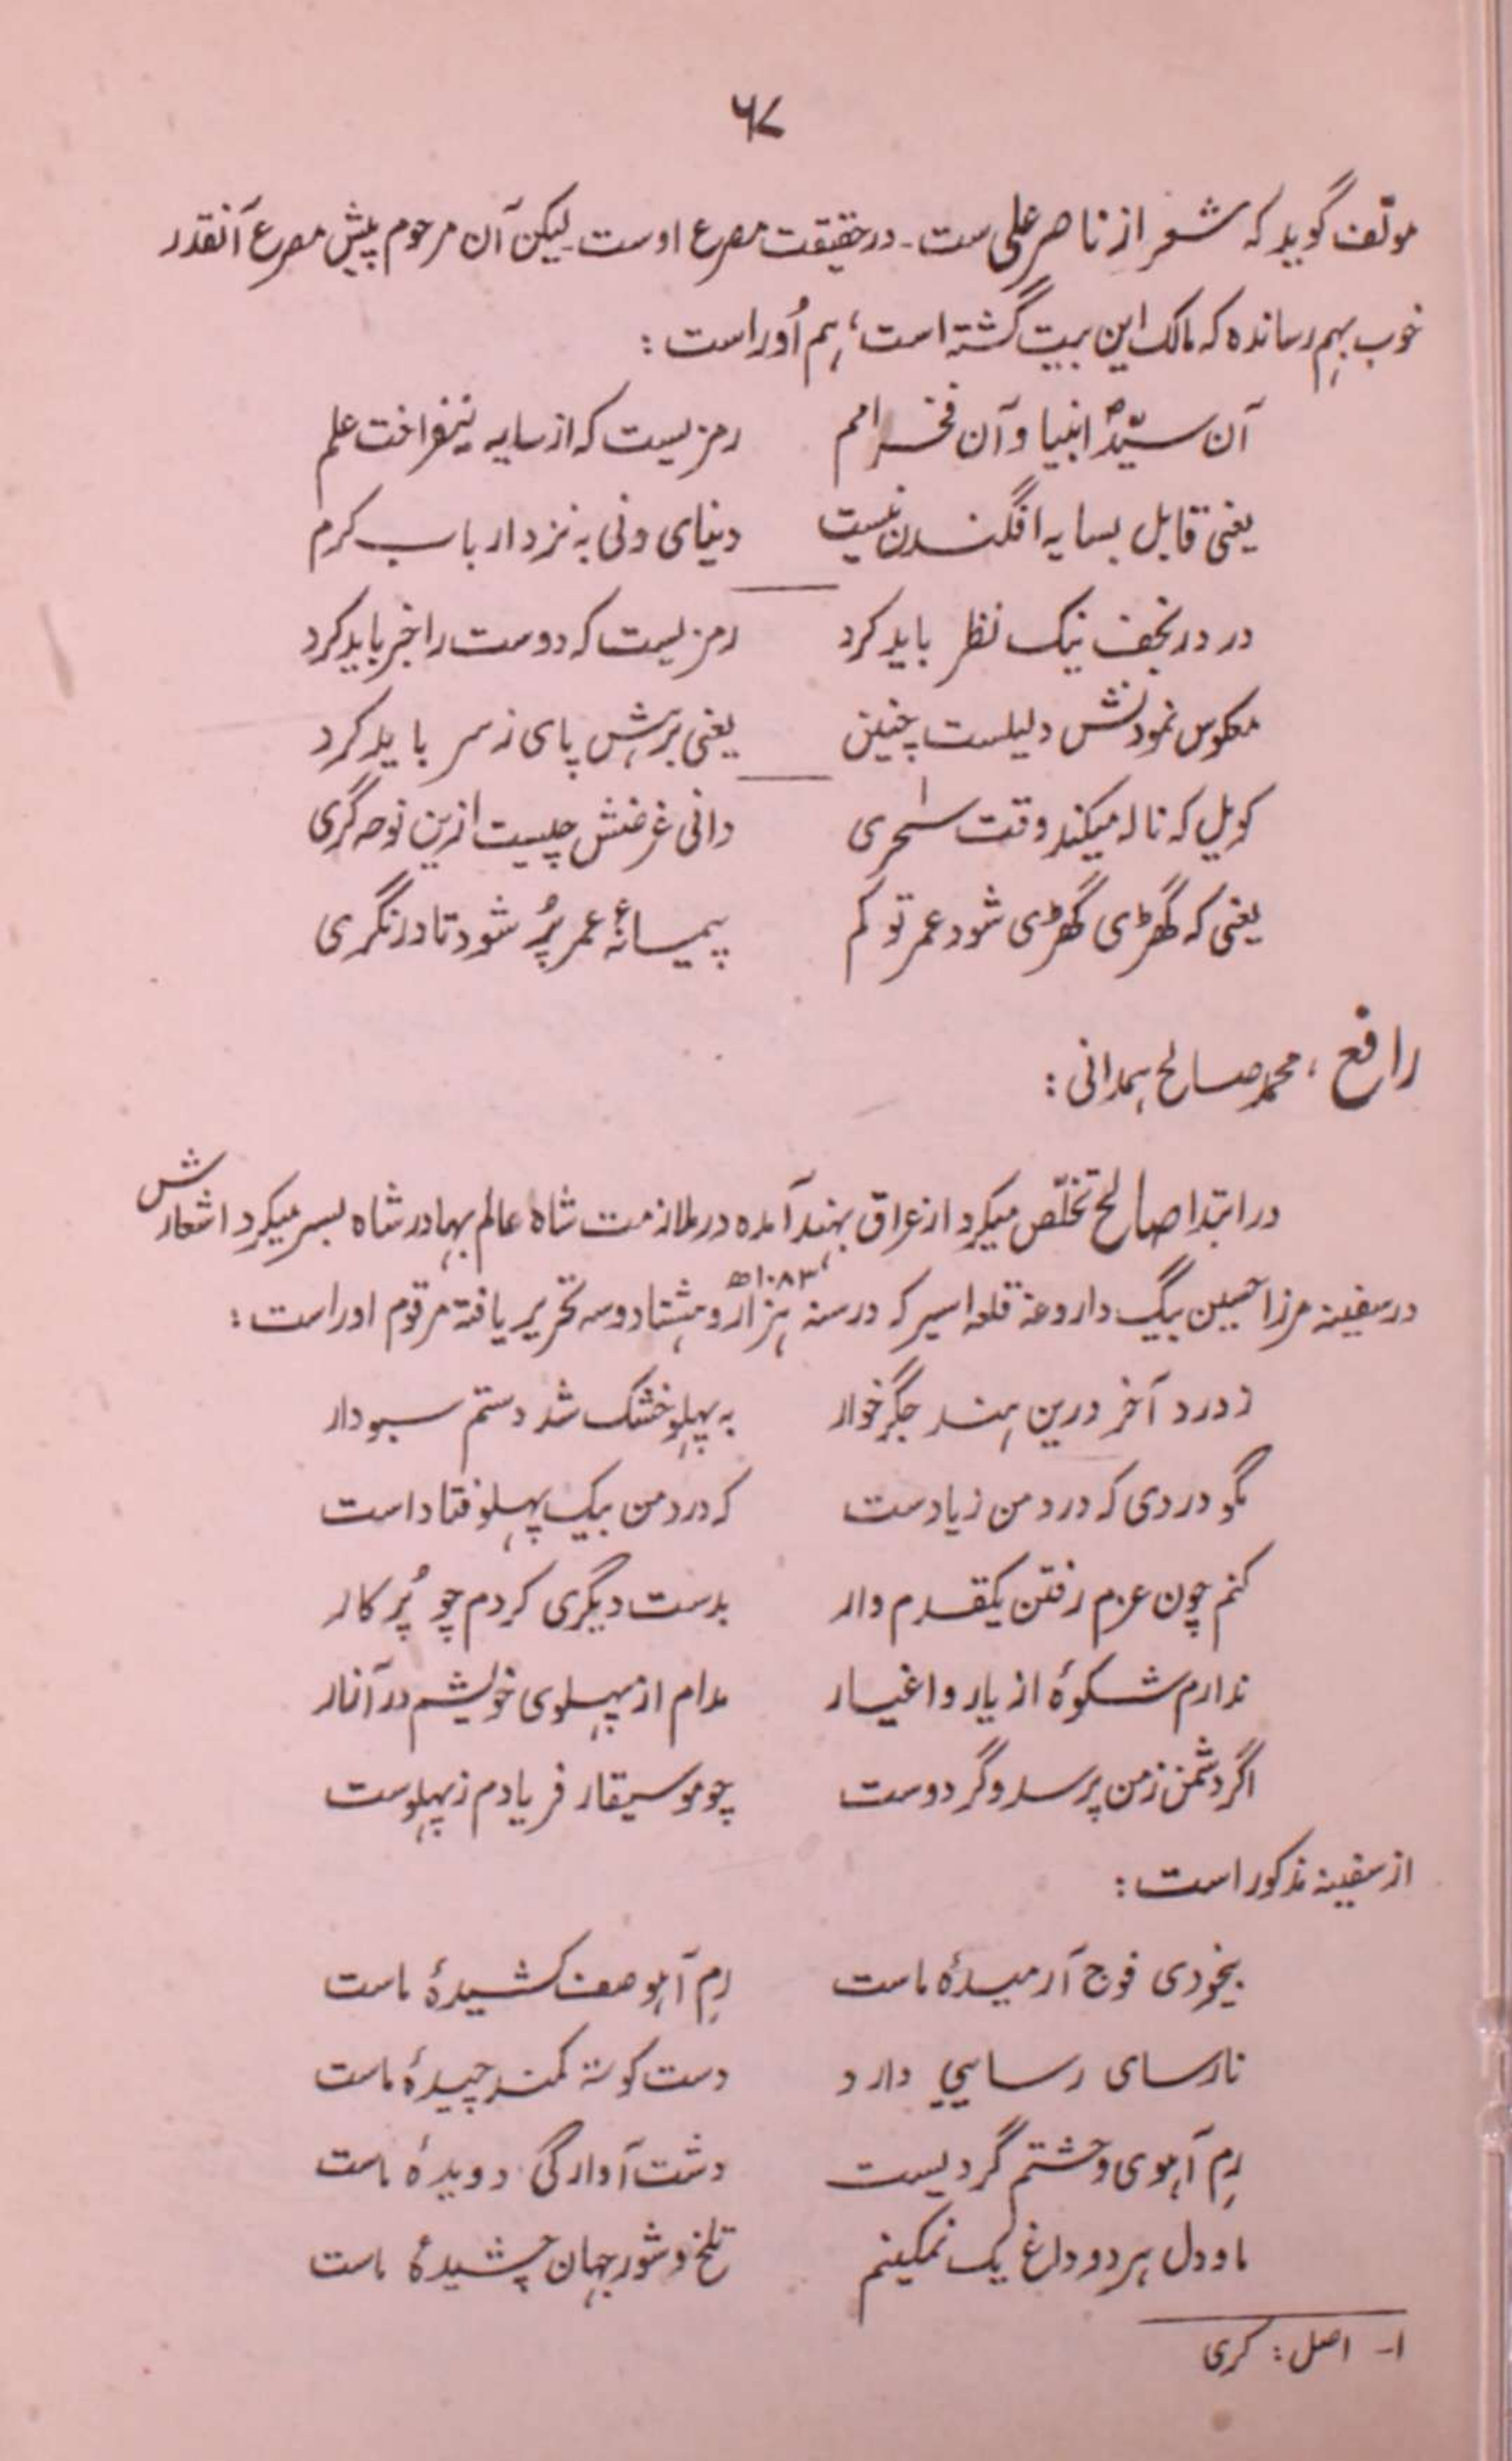 ۶۷
مولّف گوید که شعر از ناصر علی ست ـ در حقیقت مصرع اوست لیکن آن مرحوم پیش مصرع آنقدر
خوب بہم رسانده که مالک این بیت گشته است، ہم اُوراست :
آن سیّدؐ انبیا و آن فخر امم رمزیست که از سایه نیفراخت علم
یعنی قابل بسایه افگندن نیست دنیای دنی به نزد ارباب کرم
در در نجف نیک نظر باید کرد رمزیست که دوست را خبر باید کرد
معکوس نمودنش دلیلست چنین یعنی برہش پای ز سر باید کرد
کویل که ناله میکند وقت سحری۱ دانی غرضش چیست ازین نوحه گری
یعنی که گھڑی گھڑی شود عمر تو کم پیمانۂ عمر پُر شود تا در نگری
رافع ، محمد صالح ہمدانی :
در ابتدا صالح تخلّص میکرد از عراق بہند آمده در ملازمت شاه عالم بہادر شاه بسر میکرد اشعارش
در سفینه مرزا حسین بیگ داروغه قلعه اسیر که در سنه ہزار و ہشتاد و سه ۱۰۸۳ھ، تحریر یافته مرقوم اوراست :
ز درد آخر درین ہند جگرخوار به پہلو خشک شد دستم سبودار
مگو دردی که درد من زیادست که درد من بیک پہلو فتاداست
کنم چون عزم رفتن یکقدم وار بدست دیگری کردم چو پُرکار
ندارم شکوۂ از یار و اغیار مدام از پہلوی خویشم در آزار
اگر دشمن ز من پرسد وگر دوست چو موسیقار فریادم ز پہلوست
از سفینه مذکور است :
بیخودی فوج آرمیدۂ ماست رمِ آہو صف کشیدۂ ماست
نارسای رسایی دارد دست کوته کمند چیدۂ ماست
رمِ آہوی وحشتم گردیست دشت آوارگی دویدۂ ماست
ما و دل ہر دو داغ یک نمکینم تلخ و شور جہان چشیدۂ ماست
۱- اصل : کری